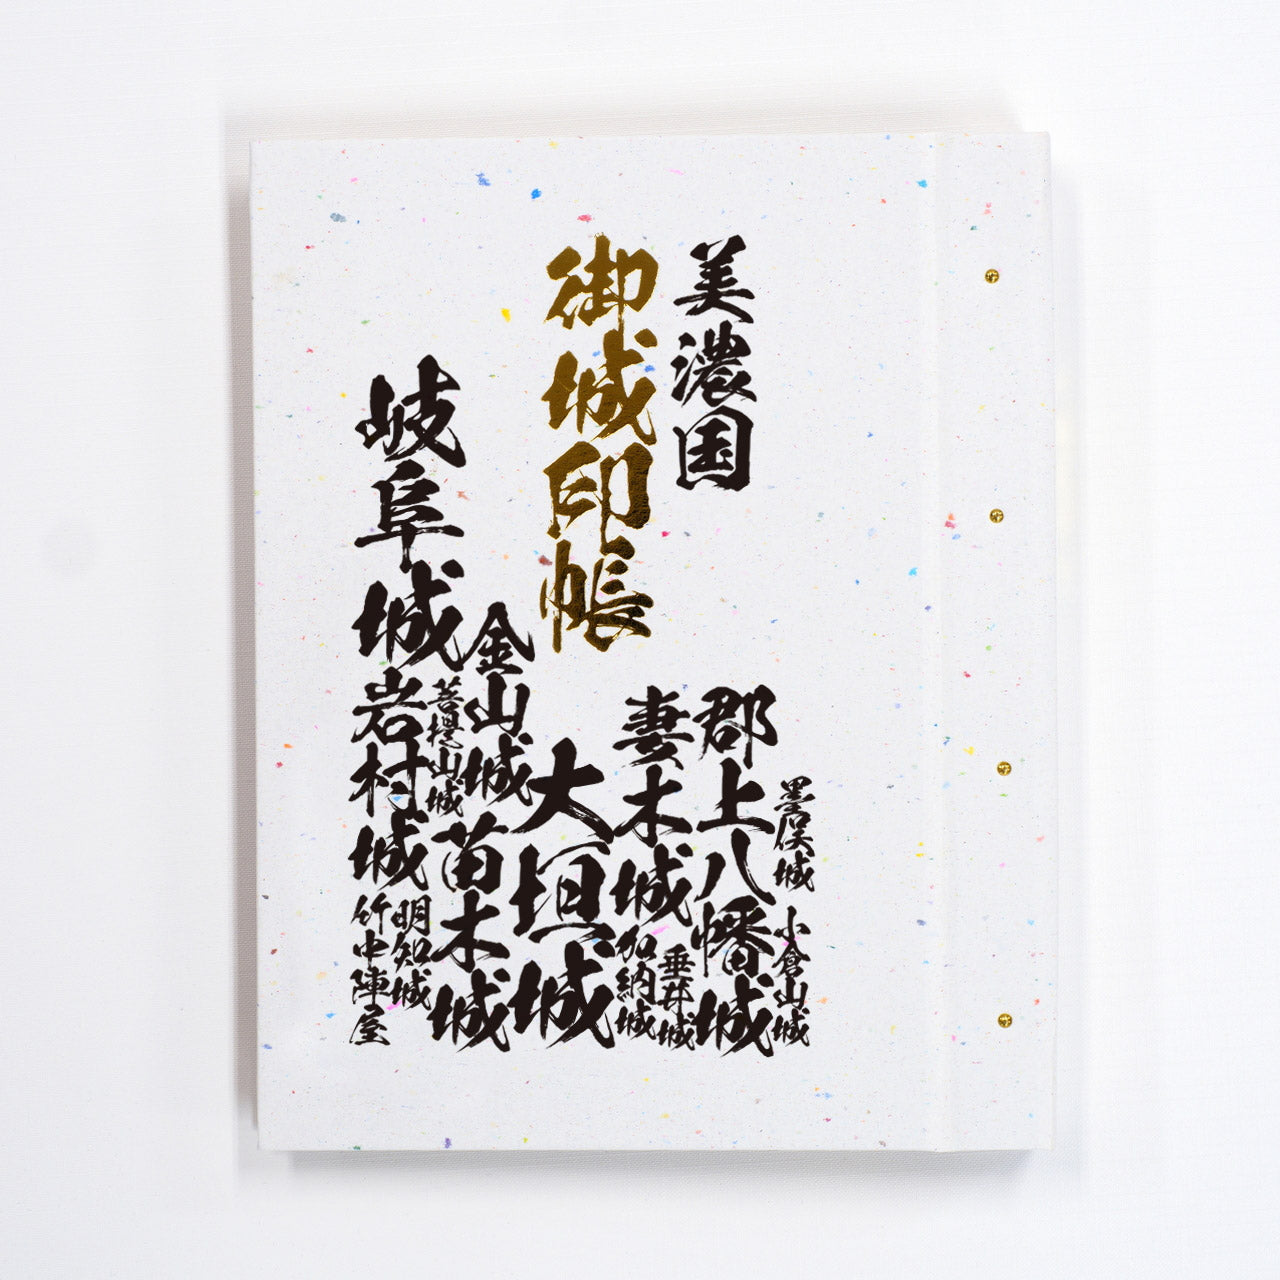 美濃国
御城印帳
墨俣城
小倉山城
郡上八幡城
垂井城
妻木城
加納城
大垣城
金山城
苗木城
菩提山城
明知城
岐阜城
岩村城
竹中陣屋